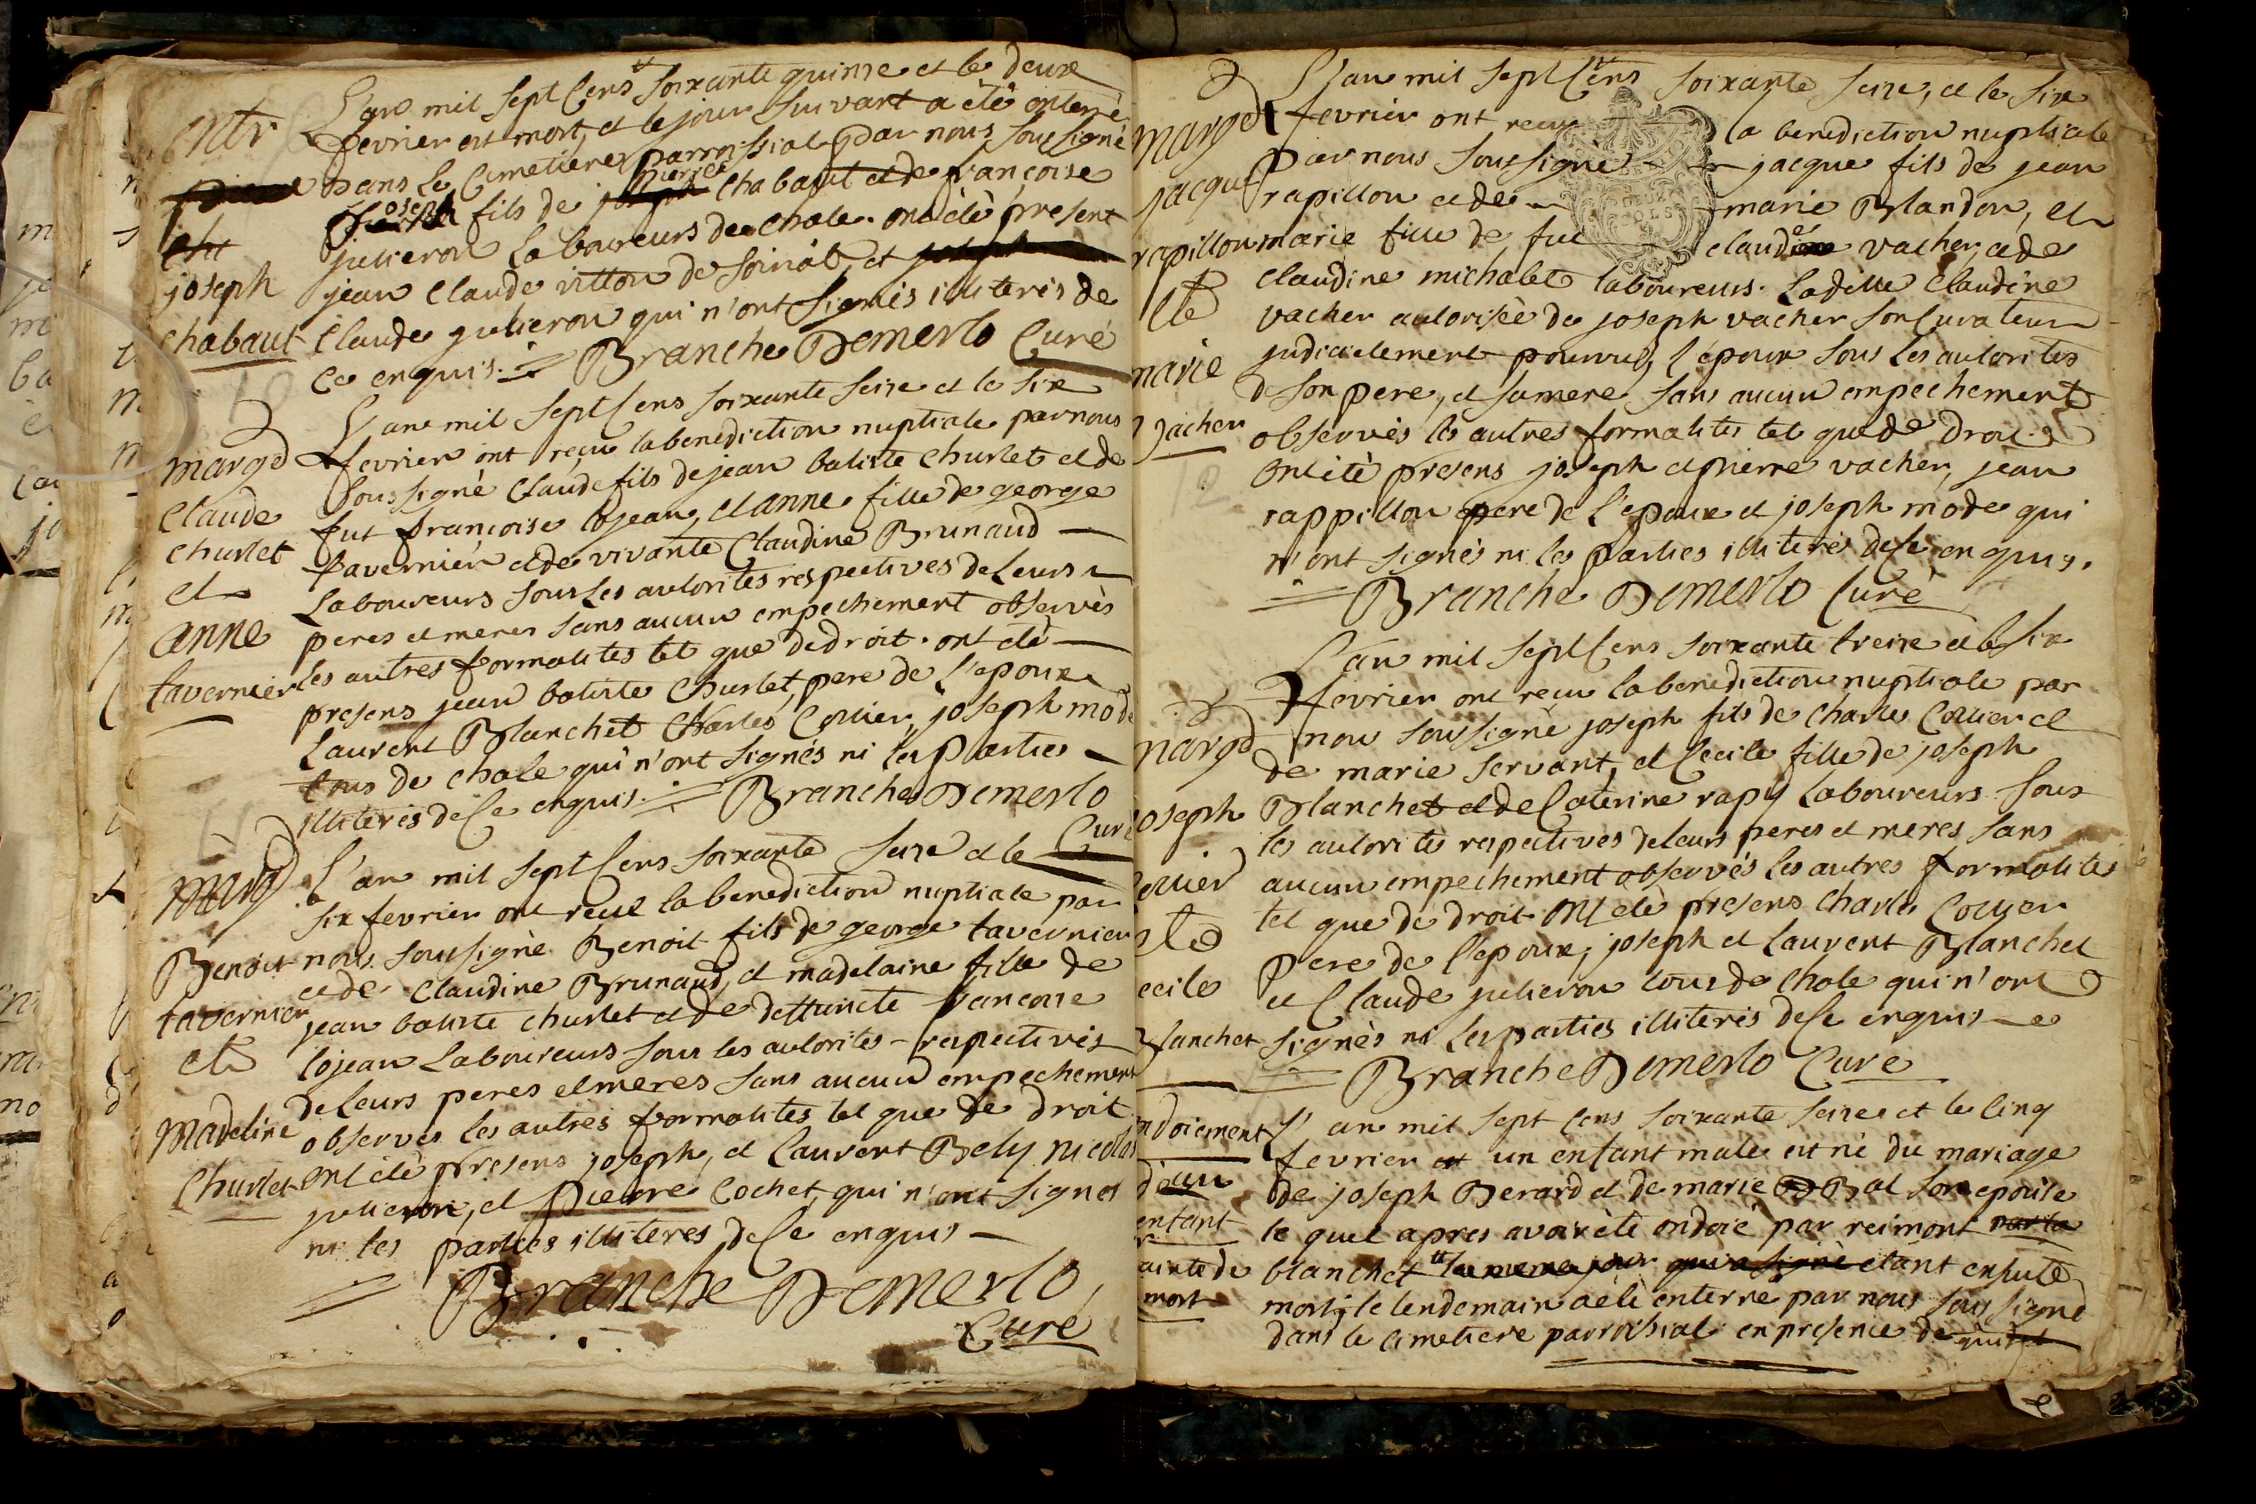 entr
joseph
chabaut
L'an mil sept Cens soixante quinse et le deux
fevrier est mort, et le jour suivant a été enterré
dans le Cimetiere parroissial par nous soussigné
joseph fils de pierre Chabaut et de françoise
julieron laboureurs de chole. ont été present
jean Claude vitton de soirial, et
Claude julieron qui n'ont signés illiterés de
ce enquis. Branche Demerlo Curé
marge
Claude
Churlet
et
anne
tavernier
L'an mil sept Cens soixante seize et le six
fevrier ont reçu la benediction nuptiale par nous
soussigné Claude fils de jean batiste Churlet et de
fut françoise lojean, et anne fille de george
tavernier et de vivante Claudine Brunaud
laboureurs sous les autorités respectives de leurs
peres et meres sans aucun empechement observés
les autres formalités tel que de droit. ont été
presens jean batiste Churlet, pere de l'epoux
Laurent Blanchet Charles Collier, joseph mode
tous de chole qui n'ont signés ni les parties
illiterés de ce enquis. Branche Demerlo
Curé
marg
Benoit
tavernier
et
Madeline
Churlet
L'an mil sept Cens soixante seize et le
six fevrier ont reçu la benediction nuptiale par
nous soussigné Benoit fils de george tavernier
et de Claudine Brunaud, et madelaine fille de
jean batiste churlet et de deffuncte francoise
lojean Laboureurs sous les autorités respectives
de leurs peres et meres sans aucun empechement
observés les autres formalités tel que de droit
ont été presens joseph, et Laurent Bely nicolas
julieron, et pierre Cochet, qui n'ont signés
ni les parties illiterés de ce enquis
Branche Demerlo
Curé
marge
jacque
rapillon
et
marie
vacher
L'an mil sept Cens soixante seize, et le six
fevrier ont reçu la benediction nuptiale
par nous soussigné jacque fils de jean
rapillon et de marie Blandon, et
marie fille de fut claude vacher, et de
Claudine michalet laboureurs. Ladille Claudine
vacher autorisée de joseph vacher son Curateur
judicielement pourvu, l'epoux sous les autorités
de son pere, et sa mere sans aucun empechement
observés les autres formalités tel que de droit
ont été presens joseph et pierre vacher, jean
rappillon pere de l'epoux et joseph mode qui
n'ont signés ni les parties illiterés de ce enquis.
Branche Demerlo Curé
marge
joseph
Collier
et
cecile
Blanchet
L'an mil sept Cens soixante treize et le six
fevrier ont reçu la benediction nuptiale par
nous soussigné joseph fils de Charles Collier et
de marie servant, et Cecile fille de joseph
Blanchet et de Caterine rapy Laboureurs sous
les autorités respectives de leurs peres et meres sans
aucun empechement observés les autres formalités
tel que de droit ont été presens Charles Collier
pere de l'epoux, joseph et Laurent Blanchet
et Claude julieron tous de Chole qui n'ont
signés ni les parties illiterés de ce enquis
Branche Demerlo Curé
ondoiement
d'un
enfant
mort
L'an mil sept Cens soixante seize et le cinq
fevrier un enfant male est né du mariage
de joseph Berard et de marie Bal son epouse
le quel apres avoir été ondoié par reimont
blanchet étant ensuite
mort, le lendemain a été enterré par nous soussigné
dans le cimetiere parroissial en presence de